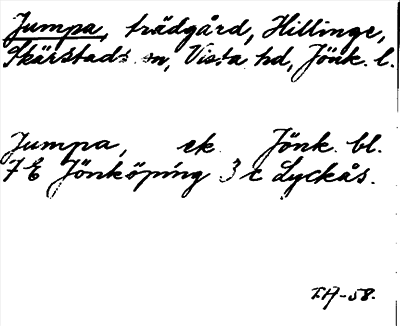 Jumpa, trädgård, Hillinge,
Skärstads sn, Vista hd, Jönk. l.
Jumpa, ek. Jönk. bl.
7 E Jönköping 3 c Lyckås.
I.H-58.